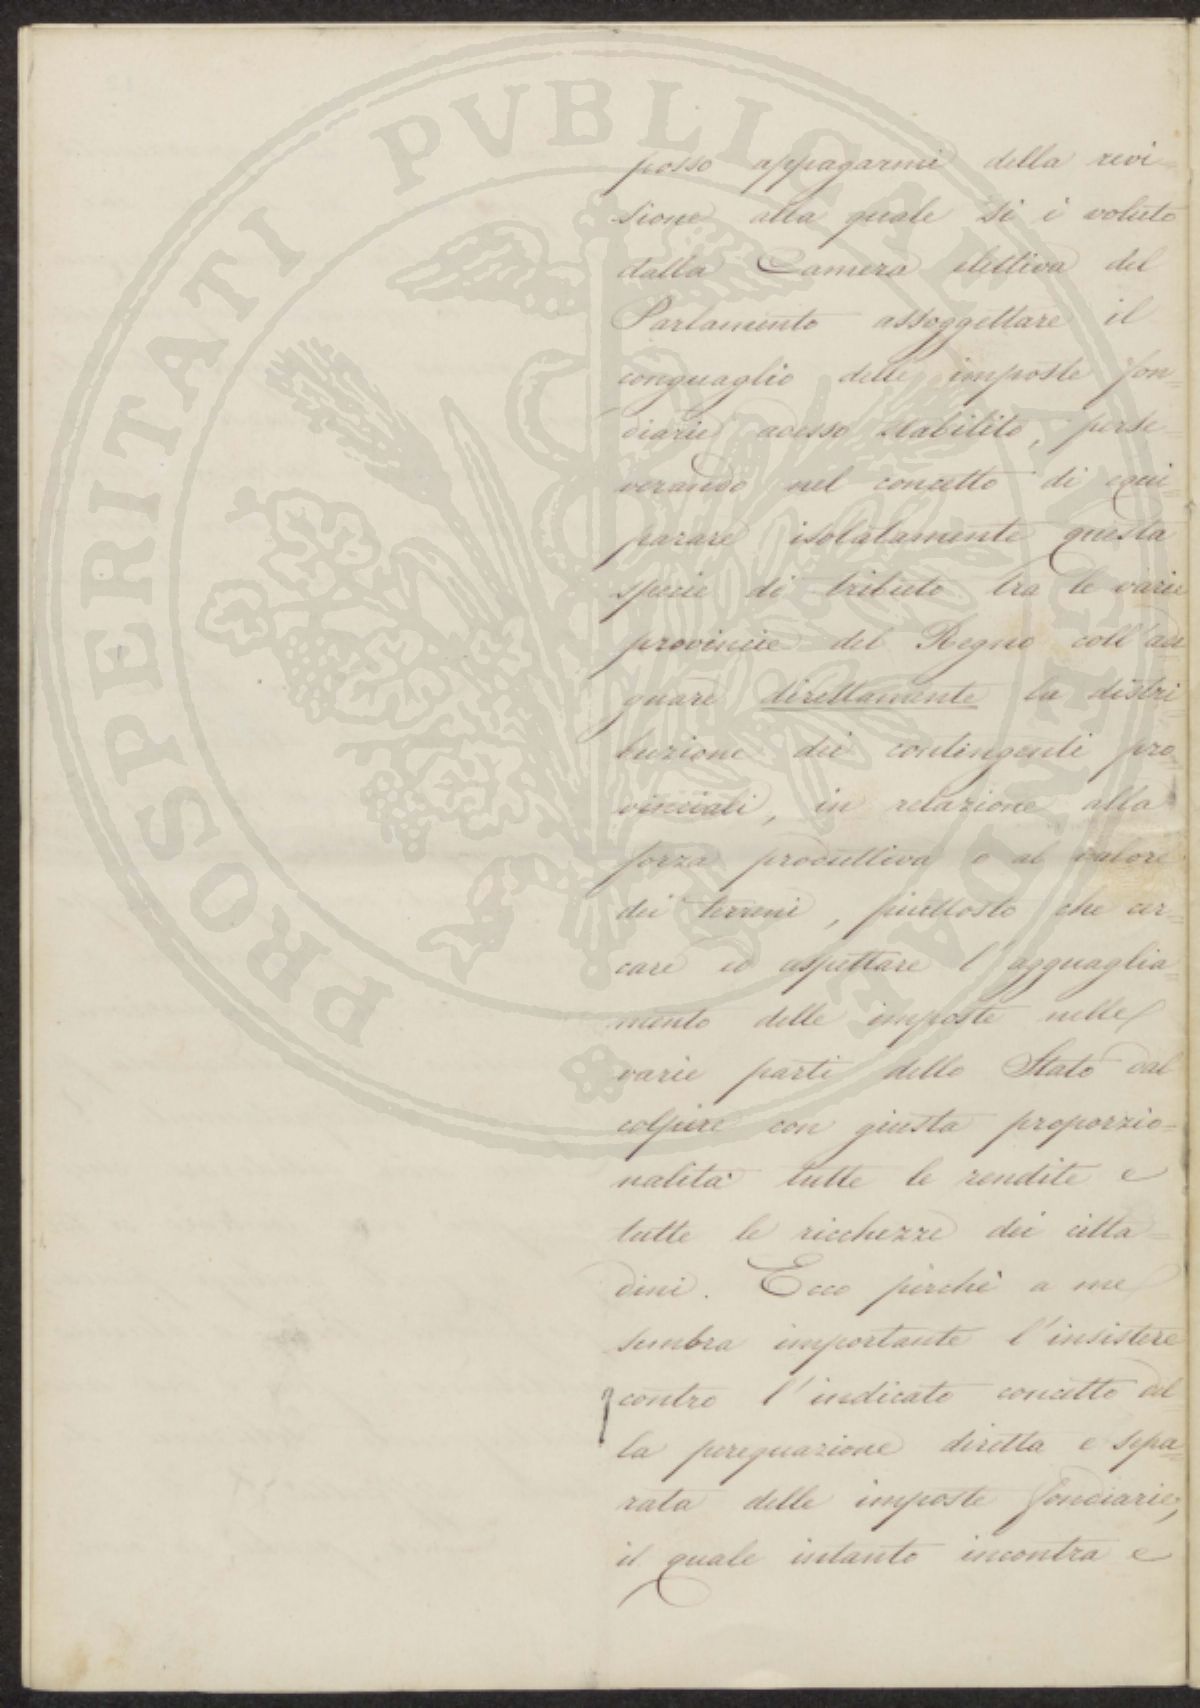 PROSPERITATI PVBLICAE AVGENDAE
posso appagarmi della revi=
sione alla quale si è voluto
dalla Camera elettiva del
Parlamento assoggettare il
conguaglio delle imposte fon=
diarie adesso stabilito, perse=
verando nel concetto di equi=
parare isolatamente questa
specie di tributo tra le varie
provincie del Regno coll'ade
quare direttamente la distri=
buzione dei contingenti pro=
vinciali, in relazione alla
forza produttiva o al valore
dei terreni, piuttosto che cer=
care ed aspettare l'agguaglia=
mento delle imposte nelle
varie parti dello Stato dal
colpire con giusta proporzio=
nalità tutte le rendite e
tutte le ricchezze dei citta=
dini. Ecco perchè a me
sembra importante l'insistere
contro l'indicato concetto del=
la perequazione diretta e sepa=
rata delle imposte fondiarie,
il quale intanto incontra e